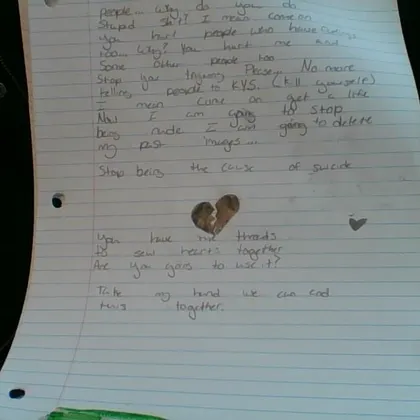 people... why do you do
stupid shit? I mean come on
you hurt people who have feelings
too... Why? You hurt me and
Some other people too
Stop your Please. No more
telling people to K.Y.S. (kill yourself)
I mean come on get a life
Now I am going to stop
being rude I am going to delete
my past images...
Stop being the cause of suicide
You have the threads
to sew hearts together
Are you going to use it?
Take my hand we can end
this together.